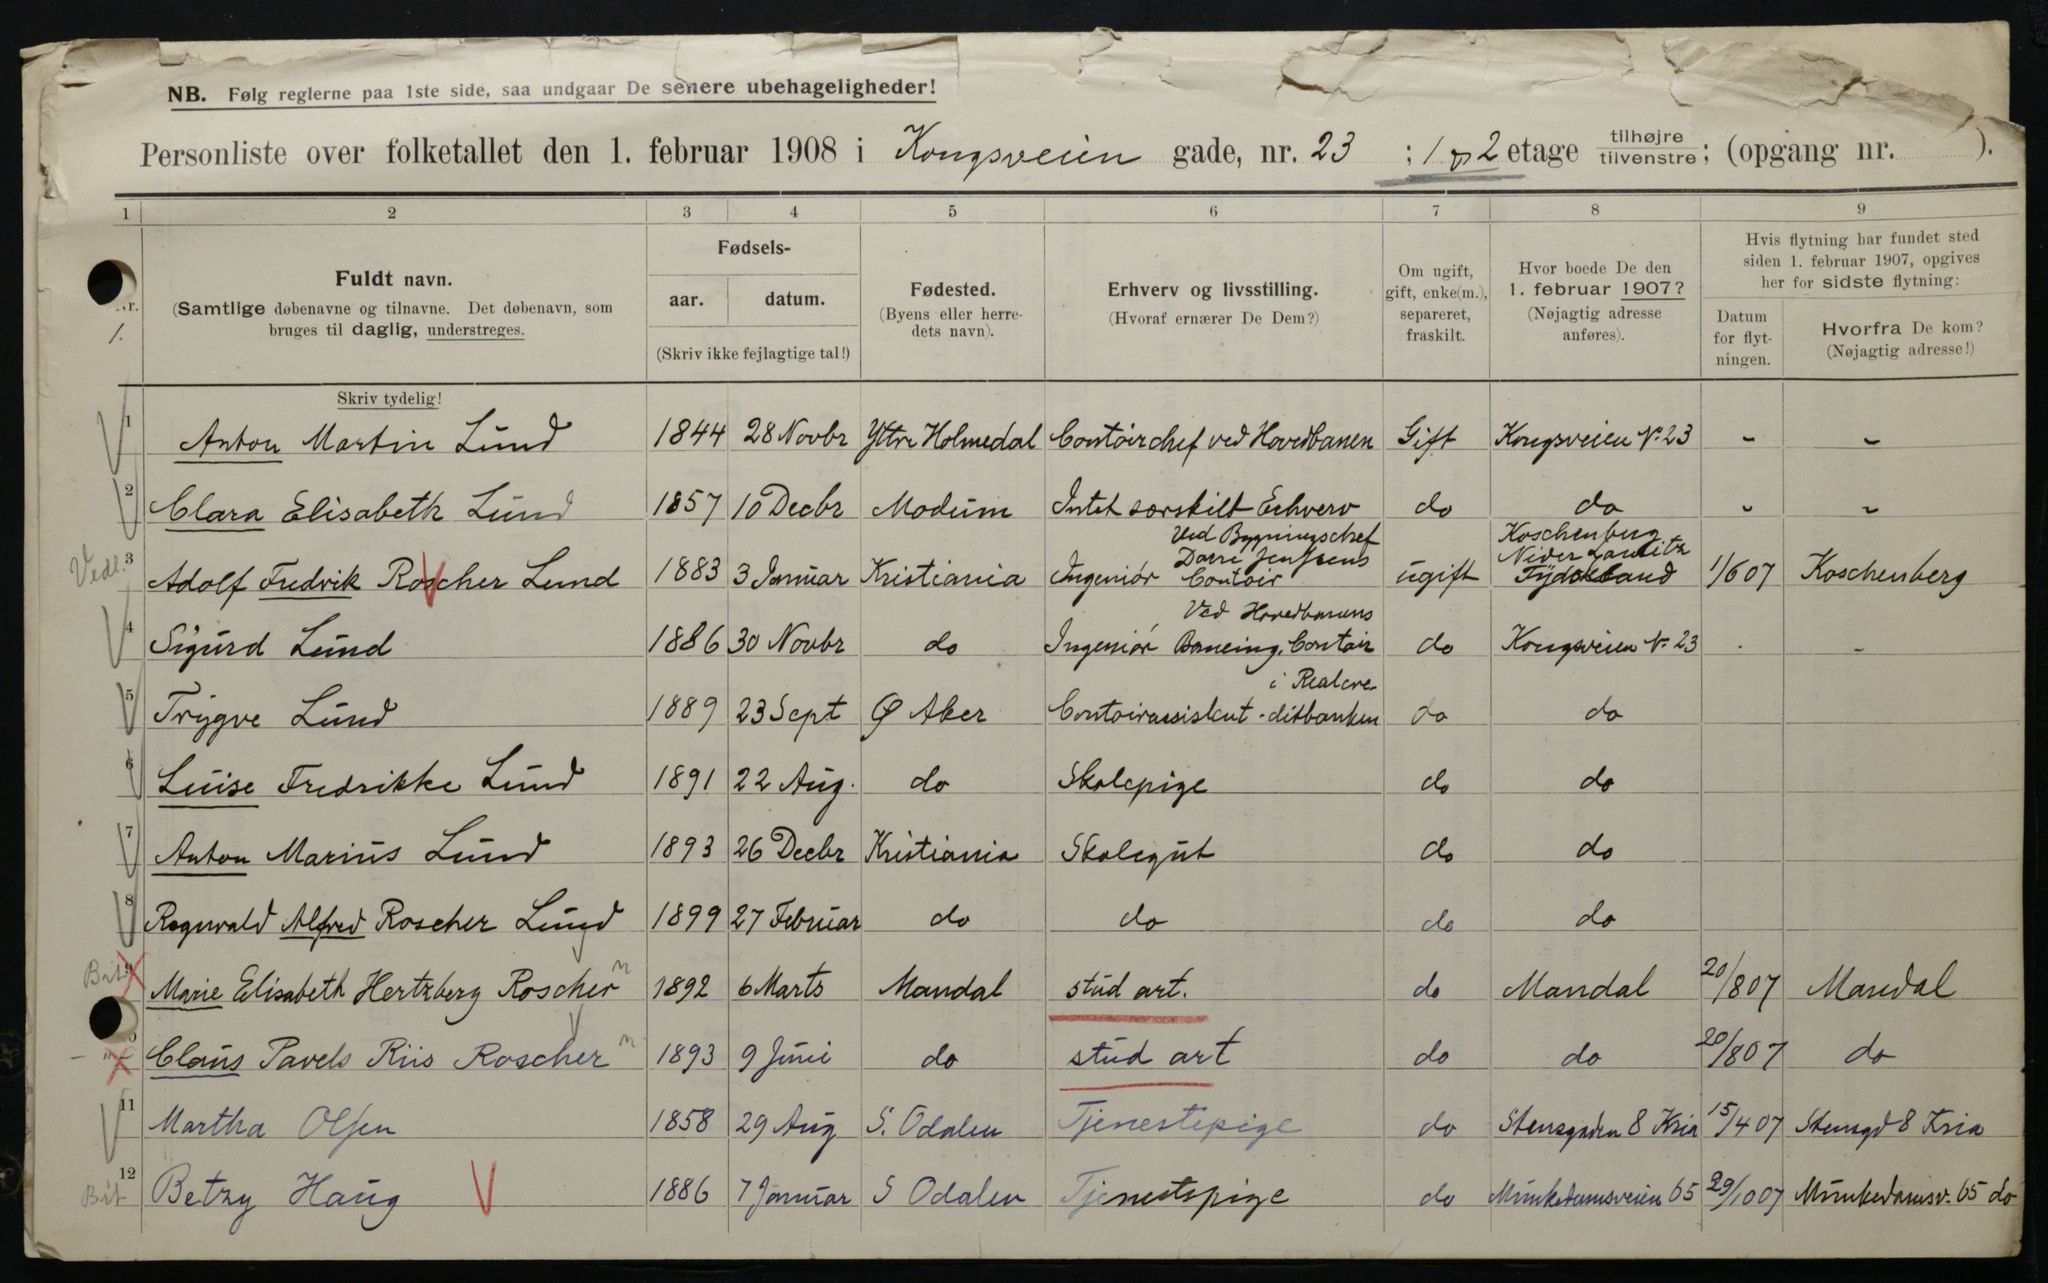 NB. Følg reglerne paa 1ste side, saa undgaar De senere ubehageligheder!
Personliste over folketallet den 1. februar 1908 i Kongsveien gade, nr. 23 ; 1 og 2 etage tilhøjre tilvenstre; (opgang nr. ).
1 2 3 4 5 6 7 8 9
Nr. 1.
Fuldt navn.
(Samtlige døbenavne og tilnavne. Det døbenavn, som
bruges til daglig, understreges.
Skriv tydelig!
Fødsels-
aar. datum.
(Skriv ikke fejlagtige tal!)
Fødested.
(Byens eller herre-
dets navn).
Erhverv og livsstilling.
(Hvoraf ernærer De Dem?)
Om ugift,
gift, enke(m.),
separeret,
fraskilt.
Hvor boede De den
1. februar 1907?
(Nøjagtig adresse
anføres).
Hvis flytning har fundet sted
siden 1. februar 1907, opgives
her for sidste flytning:
Datum
for flyt-
ningen.
Hvorfra De kom?
(Nøjagtig adresse!)
1 Anton Martin Lund 1844 28 Novbr Yttre Holmedal Contoirchef ved Hovedbanen Gift Kongsveien No. 23 - -
2 Clara Elisabeth Lund 1857 10 Decbr Modum Intet særskilt Erhverv do do - -
Ved Bygningschef Koschenberg
Darre Jenssens Nider Lausitz
Vedl. 3 Adolf Fredrik Roscher Lund 1883 3 Januar Kristiania Ingeniør Contoir ugift Tydskland 1/6 07 Koschenberg
Ved Hovedbanens
4 Sigurd Lund 1886 30 Novbr do Ingeniør Baneing. Contoir do Kongsveien No. 23 - -
i Realcre-
5 Trygve Lund 1889 23 Sept Ø Aker Contoirassistent -ditbanken do do
6 Luise Fredrikke Lund 1891 22 Aug. do Skolepige do do
7 Anton Marius Lund 1893 26 Decbr Kristiania Skolegut do do
8 Ragnvald Alfred Roscher Lund 1899 27 Februar do do do do
Bit 9 Marie Elisabeth Hertzberg Roscher 1892 6 Marts Mandal stud art. do Mandal 20/8 07 Mandal
Claus Pavels Riis Roscher 1893 9 Juni do stud art do do 20/8 07 do
11 Martha Olsen 1858 29 Aug S. Odalen Tjenestepige do Stensgaden 8 Kria 15/4 07 Stensgd 8 Kria
Bit 12 Betzy Haug 1886 7 Januar S Odalen Tjenestepige do Munkedamsveien 65 29/10 07 Munkedamsv. 65 do